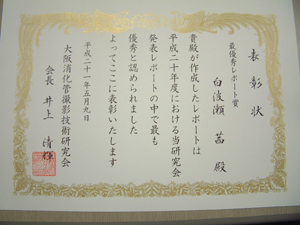 表彰状
最優秀レポート賞
白波瀬 茜 殿
貴殿が作成したレポートは
平成二十年度における当研究会
発表レポートの中で最も
優秀と認められました
よってここに表彰いたします
平成二十一年五月九日
大阪消化管撮影技術研究会
会長 井上 清輝